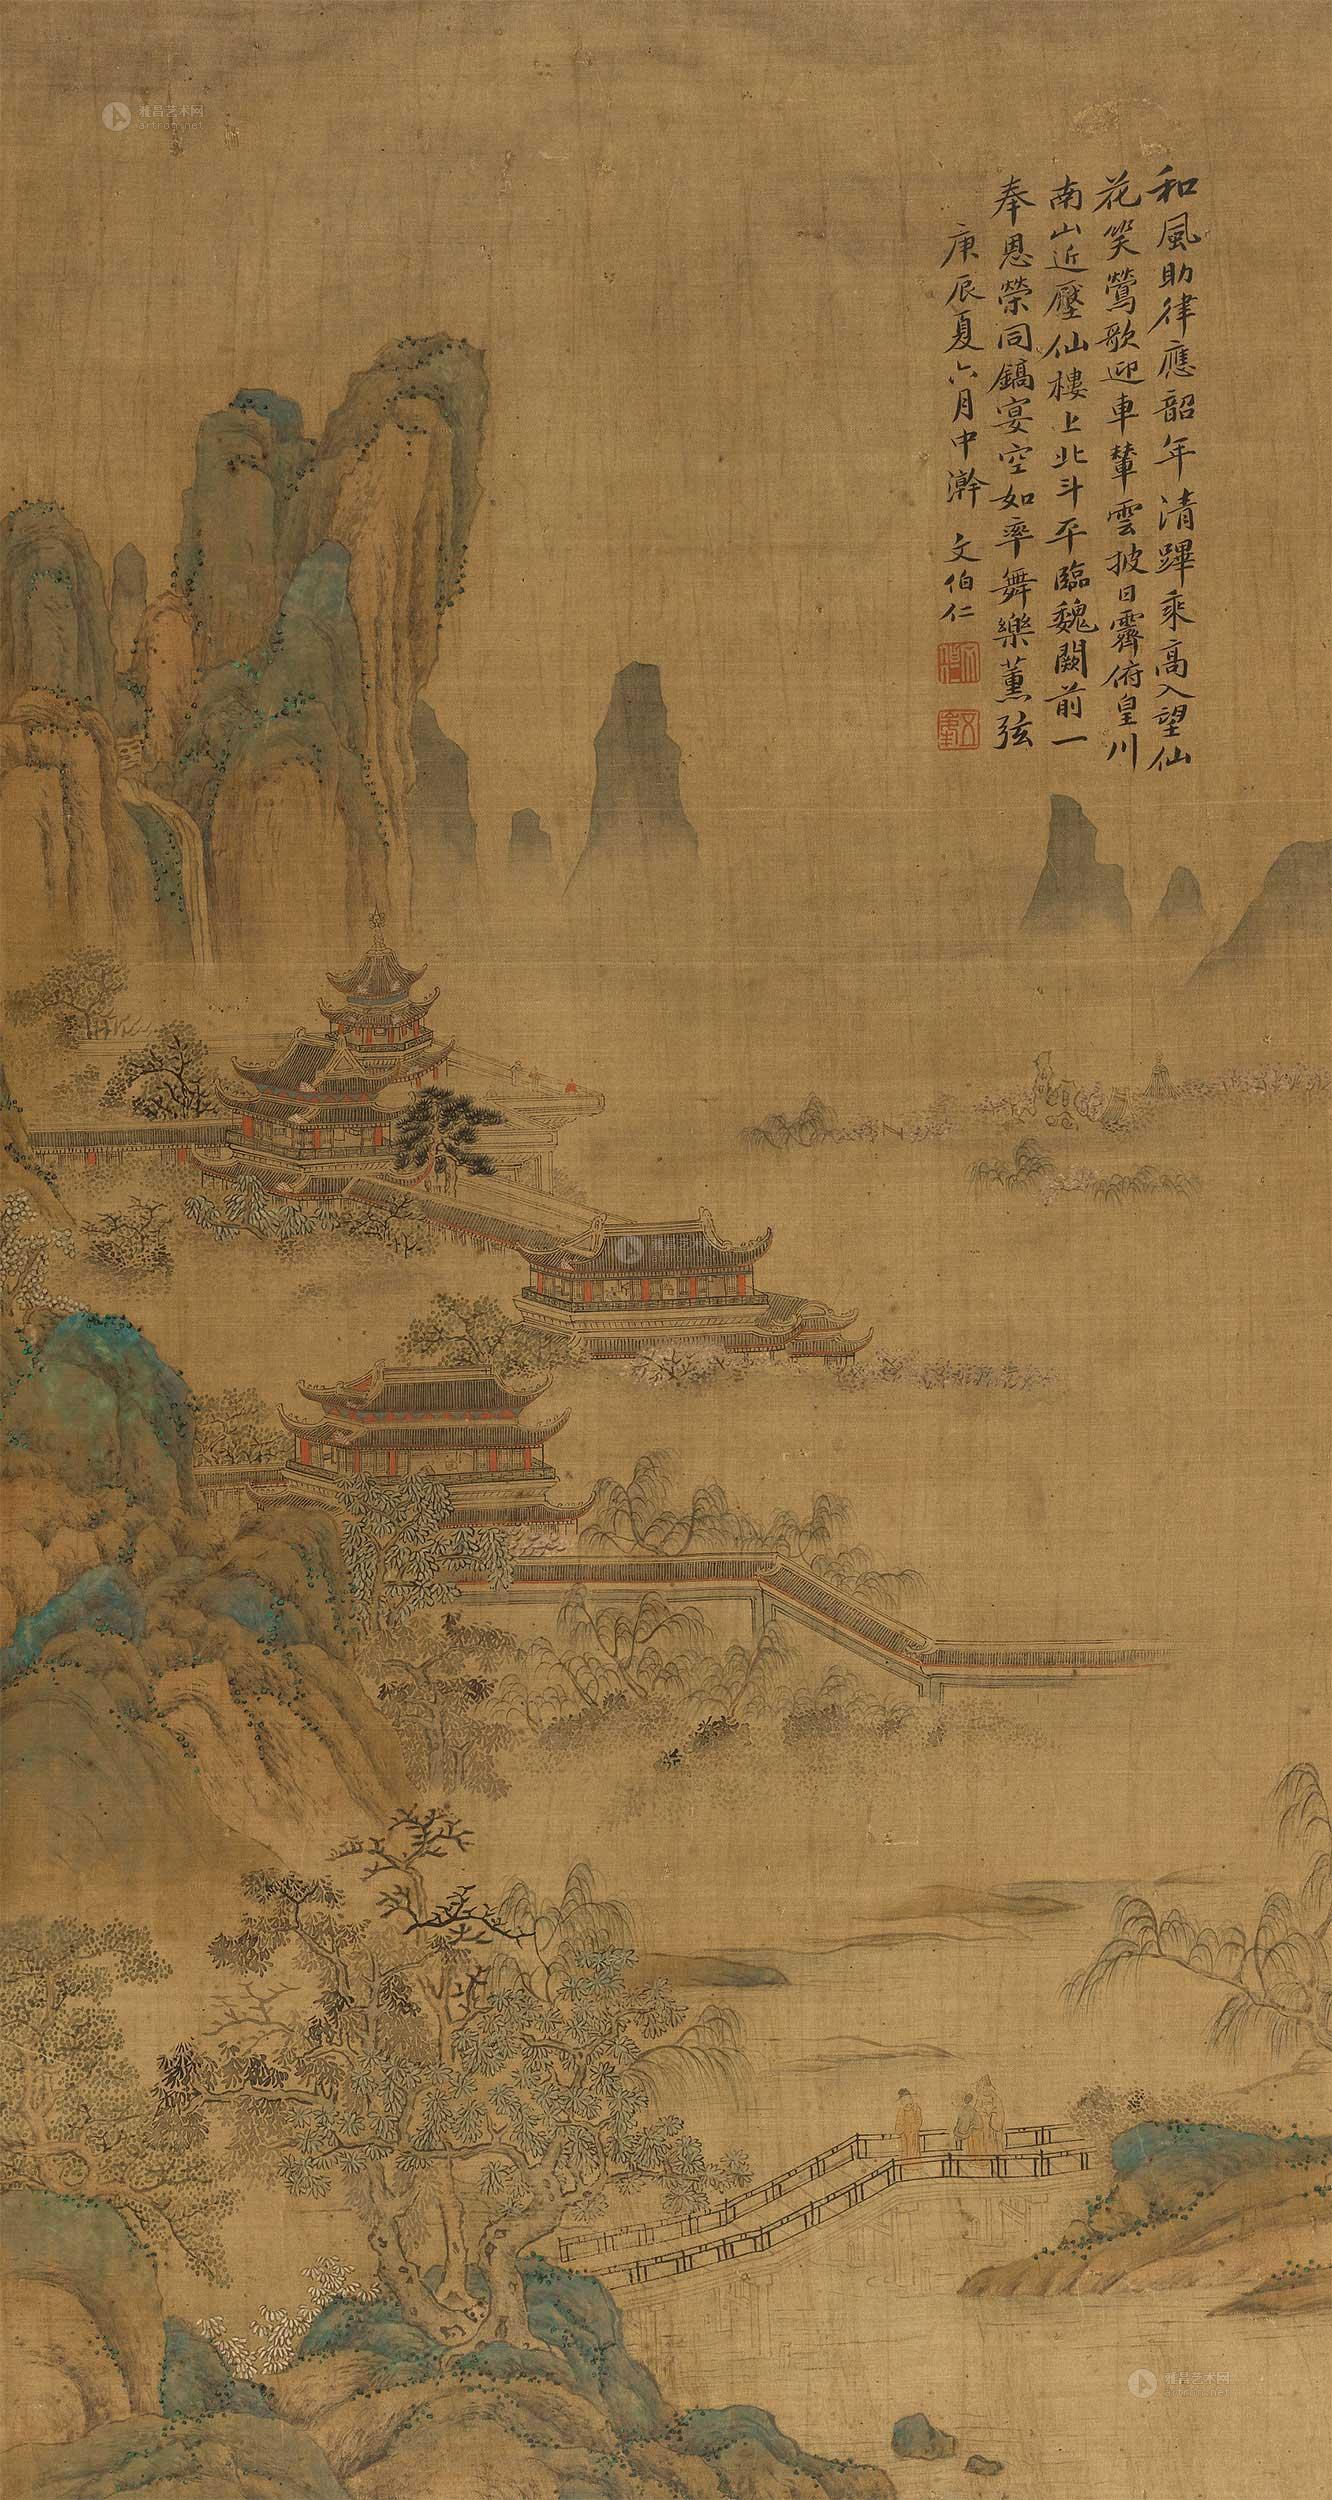 和風助律應韶年清蹕乘高入望仙
花笑鶯歌迎車輦雲披日霽俯皇川
南山近壓仙樓上北斗平臨魏闕前一
奉恩榮同鎬宴空如率舞樂薰弦
庚辰夏六月中澣 文伯仁
雅昌艺术网
artron.net
雅昌艺术网
雅昌艺术网
artron.net